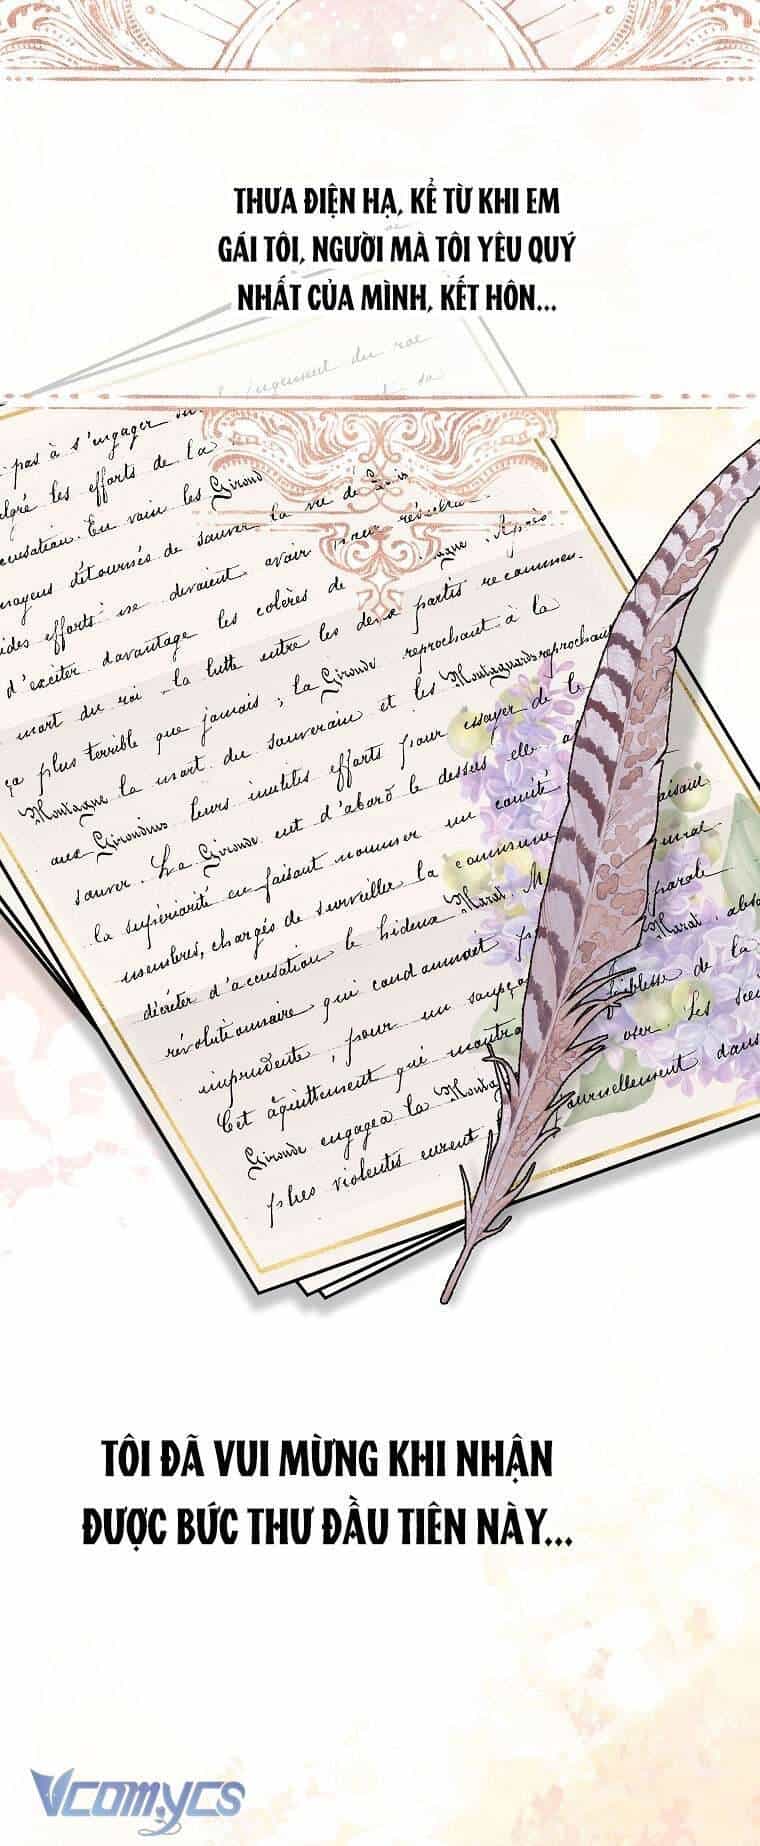 THƯA ĐIỆN HẠ, KỂ TỪ KHI EM
GÁI TÔI, NGƯỜI MÀ TÔI YÊU QUÝ
NHẤT CỦA MÌNH, KẾT HÔN...
jugement du roi
pas à s'engager
les efforts de la
. En vain les Girond
détournés de sauver la vie de Louis
efforts ne devaient avoir pour
d'exciter davantage les colères de Après
mort du roi la lutte entre les deux partis recommen-
ça plus terrible que jamais ; la Gironde reprochant à la
Montagne la mort du souverain et les Montagnards reprochant
aux Girondins leurs inutiles efforts pour essayer de le
sauver. La Gironde eut d'abord le dessus elle
la supériorité en faisant nommer un comité
membres, chargés de surveiller la commune
décréter d'accusation le hideux Marat. parole
révolutionnaire qui condamnait Marat, abso
imprudente, pour un soupço faiblesse de la
Cet acquittement qui montra oser. Les
Gironde engagea la Montag journellement dans
plus violentes eurent
TÔI ĐÃ VUI MỪNG KHI NHẬN
ĐƯỢC BỨC THƯ ĐẦU TIÊN NÀY...
VCOMYCS